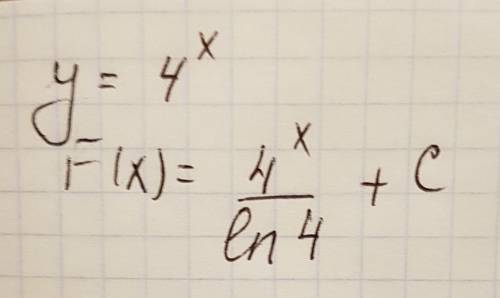 y = 4^x
F(x) = 4^x / ln 4 + C